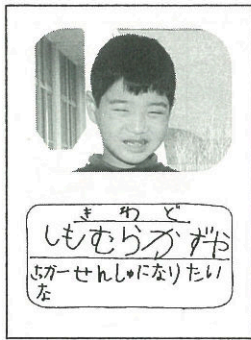 きわど
しもむらかずや
せんしゅになりたい
な